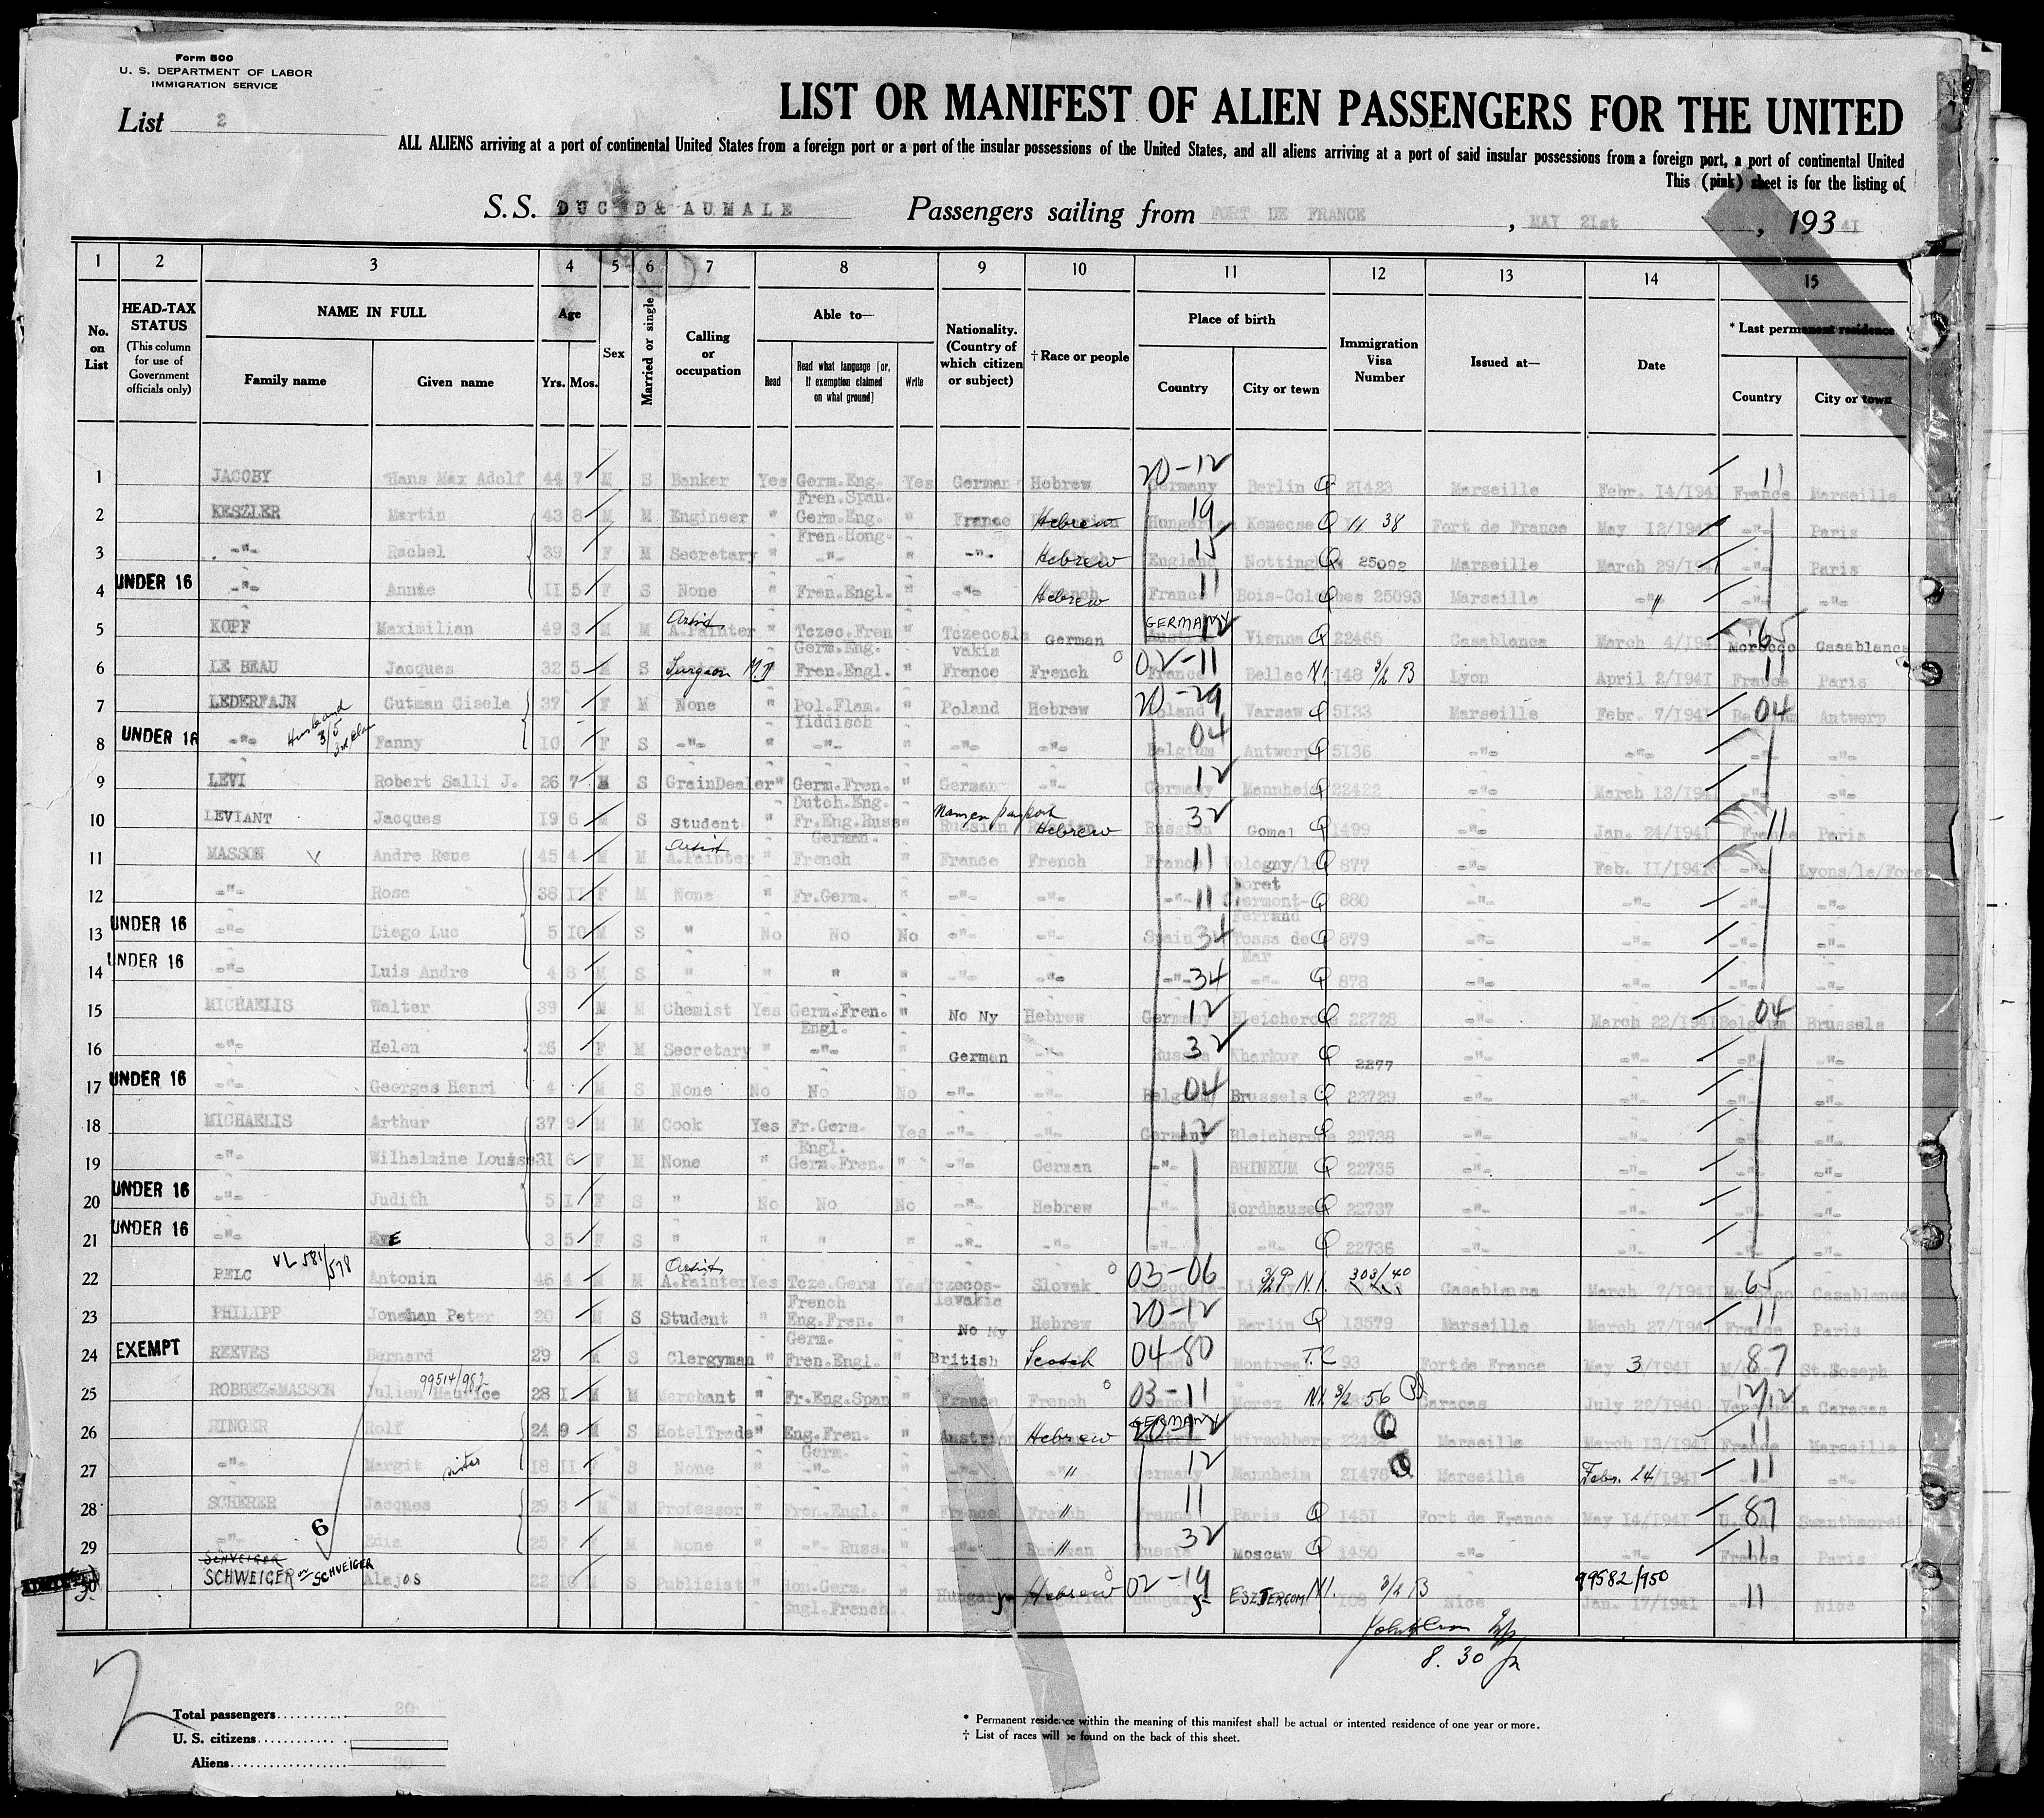 Form 500
U. S. DEPARTMENT OF LABOR
IMMIGRATION SERVICE
List 2
LIST OR MANIFEST OF ALIEN PASSENGERS FOR THE UNITED
ALL ALIENS arriving at a port of continental United States from a foreign port or a port of the insular possessions of the United States, and all aliens arriving at a port of said insular possessions from a foreign port, a port of continental United
This (pink) sheet is for the listing of
S. S. DUC D& AUMALE Passengers sailing from FORT DE FRANCE , MAY 21st , 193 41
1 2 3 4 5 6 7 8 9 10 11 12 13 14 15
No. on List
HEAD-TAX STATUS (This column for use of Government officials only)
NAME IN FULL Family name Given name
Age Yrs. Mos.
Sex
Married or single
Calling or occupation
Able to— Read Read what language [or, if exemption claimed on what ground] Write
Nationality. (Country of which citizen or subject)
† Race or people
Place of birth Country City or town
Immigration Visa Number
Issued at—
Date
* Last permanent residence Country City or town
1 JACOBY Hans Max Adolf 44 7 M S Banker Yes Germ.Eng. Fren.Span. Yes German Hebrew 20-12 Germany Berlin Q 21423 Marseille Febr. 14/1941 France 11 Marseille
2 KESZLER Martin 43 8 M M Engineer " Germ.Eng. Fren.Hong. " France Hebrew 19 Kemecse Q 11 38 Fort de France May 12/1941 -"- Paris
3 -"- Rachel 39 F M Secretary " -"- " -"- Hebrew England 15 Q 25092 Marseille March 29/1941 -"- Paris
4 UNDER 16 -"- Annie 11 5 F S None " Fren.Engl. " -"- Hebrew France 11 Bois-Colombes Q 25093 Marseille -"- -"- -"-
5 KOPF Maximilian 49 3 M M Artist A.Painter " Tczec.Fren Germ.Eng. " Tczecoslavakia German GERMANY 12 Vienna Q 22465 Casablanca March 4/1941 Morocco 65 Casablanca
6 LE BEAU Jacques 32 5 M S Surgeon Fren.Engl. " France French 02-11 France Bellac N.I. 148 3/2 B Lyon April 2/1941 France 11 Paris
7 LEDERFAJN Gutman Gisela 37 F M None " Pol.Flam. Yiddisch " Poland Hebrew 20-29 Poland Warsaw Q 5133 Marseille Febr. 7/1941 04 Antwerp
Husband 3/5
8 UNDER 16 -"- Fanny 10 F S -"- " -"- " -"- -"- 04 Belgium Antwerp Q 5136 -"- -"- -"- -"-
9 LEVI Robert Salli J. 26 7 M S GrainDealer " Germ.Fren. Dutch.Eng. " German -"- 12 Germany Mannheim Q 22422 -"- March 13/1941 -"- -"-
10 LEVIANT Jacques 19 6 M S Student " Fr.Eng.Russ German. " Russian Hebrew 32 Russian Gomel Q 1499 -"- Jan. 24/1941 France 11 Paris
11 MASSON Andre Rene 45 4 M M Artist A.Painter " French " France French France 11 Q 877 -"- Feb. 11/1941 -"- Lyons/la/Foret
12 -"- Rose 38 11 F M None " Fr.Germ. " -"- -"- -"- 11 Clermont-Ferrand Q 880 -"- -"- -"- -"-
13 UNDER 16 -"- Diego Luc 5 10 M S " No No No -"- -"- Spain 34 Tossa de Mar Q 879 -"- -"- -"- -"-
14 UNDER 16 -"- Luis Andre 4 8 M S " " " " -"- -"- -"- 34 -"- Q 878 -"- -"- -"- -"-
15 MICHAELIS Walter 39 M M Chemist Yes Germ.Fren. Engl. " No Ny Hebrew Germany 12 Bleicherode Q 22728 -"- March 22/1941 Belgium 04 Brussels
16 -"- Helen 26 F M Secretary " -"- " German -"- Russia 32 Kharkov Q 2277 -"- -"- -"- -"-
17 UNDER 16 -"- Georges Henri 4 M S None No No No -"- -"- Belgium 04 Brussels Q 22729 -"- -"- -"- -"-
18 MICHAELIS Arthur 37 9 M M Cook Yes Fr.Germ. Engl. Yes -"- -"- Germany 12 Bleicherode Q 22738 -"- -"- -"- -"-
19 -"- Wilhelmine Louise 31 6 F M None " Germ.Fren. " -"- German -"- BRINKUM Q 22735 -"- -"- -"- -"-
20 UNDER 16 -"- Judith 5 1 F S " No No No -"- Hebrew -"- Nordhausen Q 22737 -"- -"- -"- -"-
21 UNDER 16 -"- EvE 3 5 F S " " " " -"- -"- -"- -"- Q 22736 -"- -"- -"- -"-
22 PELC VL 581/578 Antonin 46 4 M M Artist A.Painter Yes Tcze.Germ French Yes Tzecoslavakia Slovak 03-06 N.I. 303/40 Casablanca March 7/1941 Morocco 65 Casablanca
23 PHILIPP Jonathan Peter 20 M S Student " Eng.Fren. Germ. " No Ny Hebrew 20-12 Germany Berlin Q 13579 Marseille March 27/1941 France 11 Paris
24 EXEMPT REEVES Bernard 29 M S Clergyman " Fren.Engl. " British Scotch 04-80 Montreal T.C 93 Fort de France May 3/1941 87 St.Joseph
25 ROBBEZ-MASSON 99514/982 Julien Maurice 28 1 M M Merchant " Fr.Eng.Span " France French 03-11 Morez N.I. 3/2 56 Caracas July 22/1940 Caracas
26 RINGER Rolf 24 9 M S HotelTrade " Eng.Fren. Germ. " Austrian Hebrew GERMANY 20-12 Hirschberg Q Marseille March 13/1941 France 11 Marseille
27 -"- Margit sister 18 11 F S None " -"- " -"- -"- Germany 12 Mannheim 21478 Q Marseille Febr. 24/1941 11 -"-
28 SCHERER Jacques 29 3 M M Professor " Fren.Engl. " France French " France 11 Paris Q 1451 Fort de France May 14/1941 87
29 -"- Edie 25 7 F M None " -"- Russ. " -"- " Russia 32 Moscaw Q 1450 -"- -"- France 11 Paris
30 SCHVEIGER SCHWEIGER or SCHVEIGER Alajos 22 10 M S Publicist " Hon.Germ. Engl.French " Hungary Hebrew 02-19 Hungary ESZTERGOM N.I. 168 3/2 B Nice 99582/950 Jan. 17/1941 11 Nice
6
8. 30
2
Total passengers 30
U. S. citizens
Aliens 30
* Permanent residence within the meaning of this manifest shall be actual or intented residence of one year or more.
† List of races will be found on the back of this sheet.